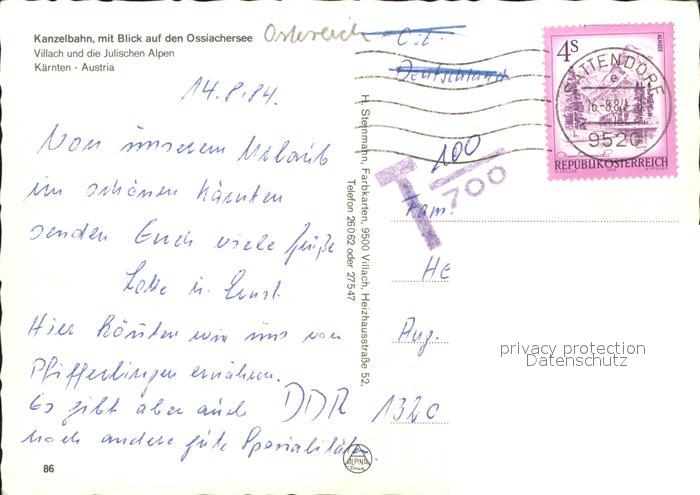 Kanzelbahn, mit Blick auf den Ossiachersee
Villach und die Julischen Alpen
Kärnten - Austria
Österreich
Deutschland
14.8.84.
Von unserem Urlaub
im schönen Kärnten
senden Euch viele Grüße
Lotte u. Ernst.
Hier könnten wir uns von
Pfifferlingen ernähren.
Es gibt aber auch
noch andere gute Spezialitäten.
86
H. Steinmann, Farbkarten, 9500 Villach, Heizhausstraße 52,
Telefon 26062 oder 27547
ALPINA
4s
ALMSEE
REPUBLIK ÖSTERREICH
SATTENDORF
16.-8.84
9520
100
T 700
Fam.
He
Aug.
DDR 1320
privacy protection
Datenschutz